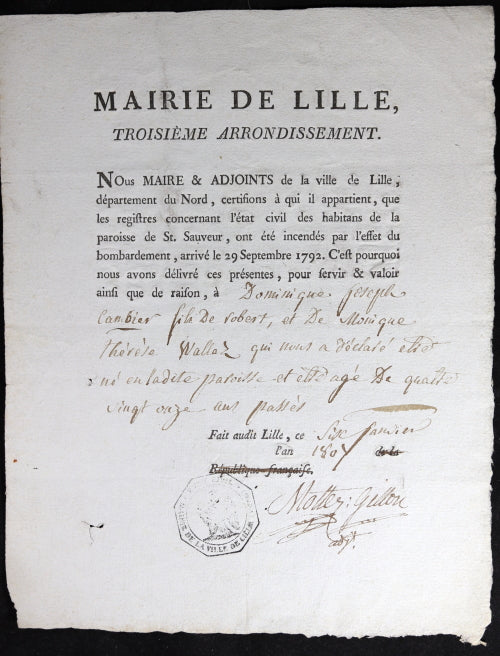 MAIRIE DE LILLE,
TROISIÈME ARRONDISSEMENT.
NOUS MAIRE & ADJOINTS de la ville de Lille,
département du Nord, certifions à qui il appartient, que
les registres concernant l'état civil des habitans de la
paroisse de St. Sauveur, ont été incendés par l'effet du
bombardement, arrivé le 29 Septembre 1792. C'est pourquoi
nous avons délivré ces présentes, pour servir & valoir
ainsi que de raison, à Dominique Joseph
Cambier fils De robert, et De Monique
thérèse Wallez qui nous a Déclaré être
né en ladite paroisse et être agé De quatre
vingt onze ans passés
Fait audit Lille, ce Six Janvier
l'an 1807 de la
République française.
Mottez: Gillon
adjt.
DE LA VILLE DE LILLE